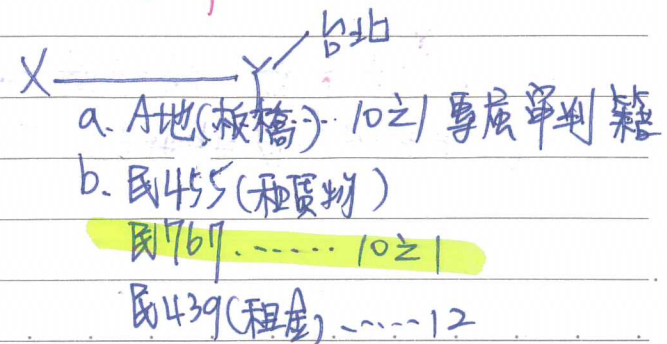 台北
X Y
a. A地(板橋)… 10之1 專屬審判籍
b. 民455(租賃物)
民767 …… 10之1
民439(租金) …… 12